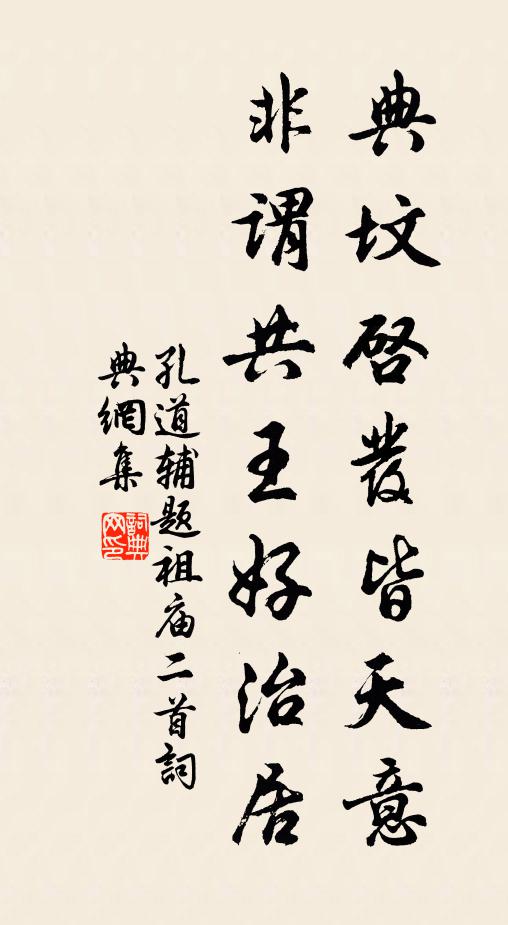 典坟啓發皆天意
非谓共王好治居
孔道辅题祖庙二首詞
典網集
詞典網印